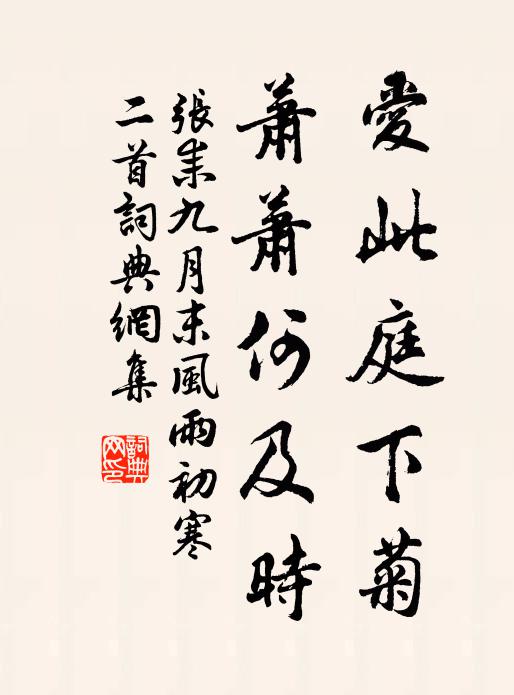 愛此庭下菊
蕭蕭何及時
張耒九月末風雨初寒
二首詞典網集
詞典
网印